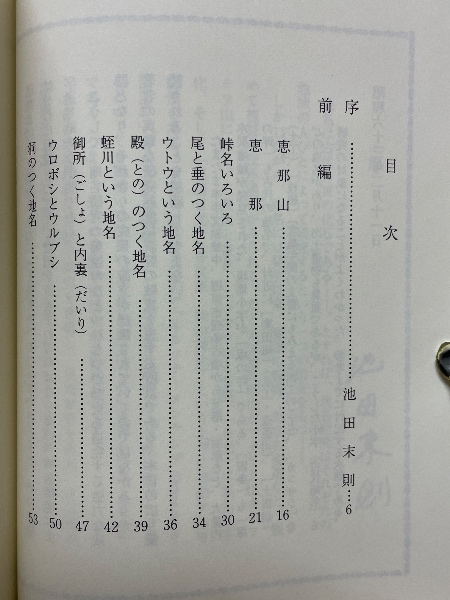 目次
序……池田末則…6
前編
恵那山……16
恵那……21
峠名いろいろ……30
尾と垂のつく地名……34
ウトウという地名……36
殿(との)のつく地名……39
蛭川という地名……42
御所(ごしょ)と内裏(だいり)……47
ウロボシとウルブシ……50
のつく地名……53